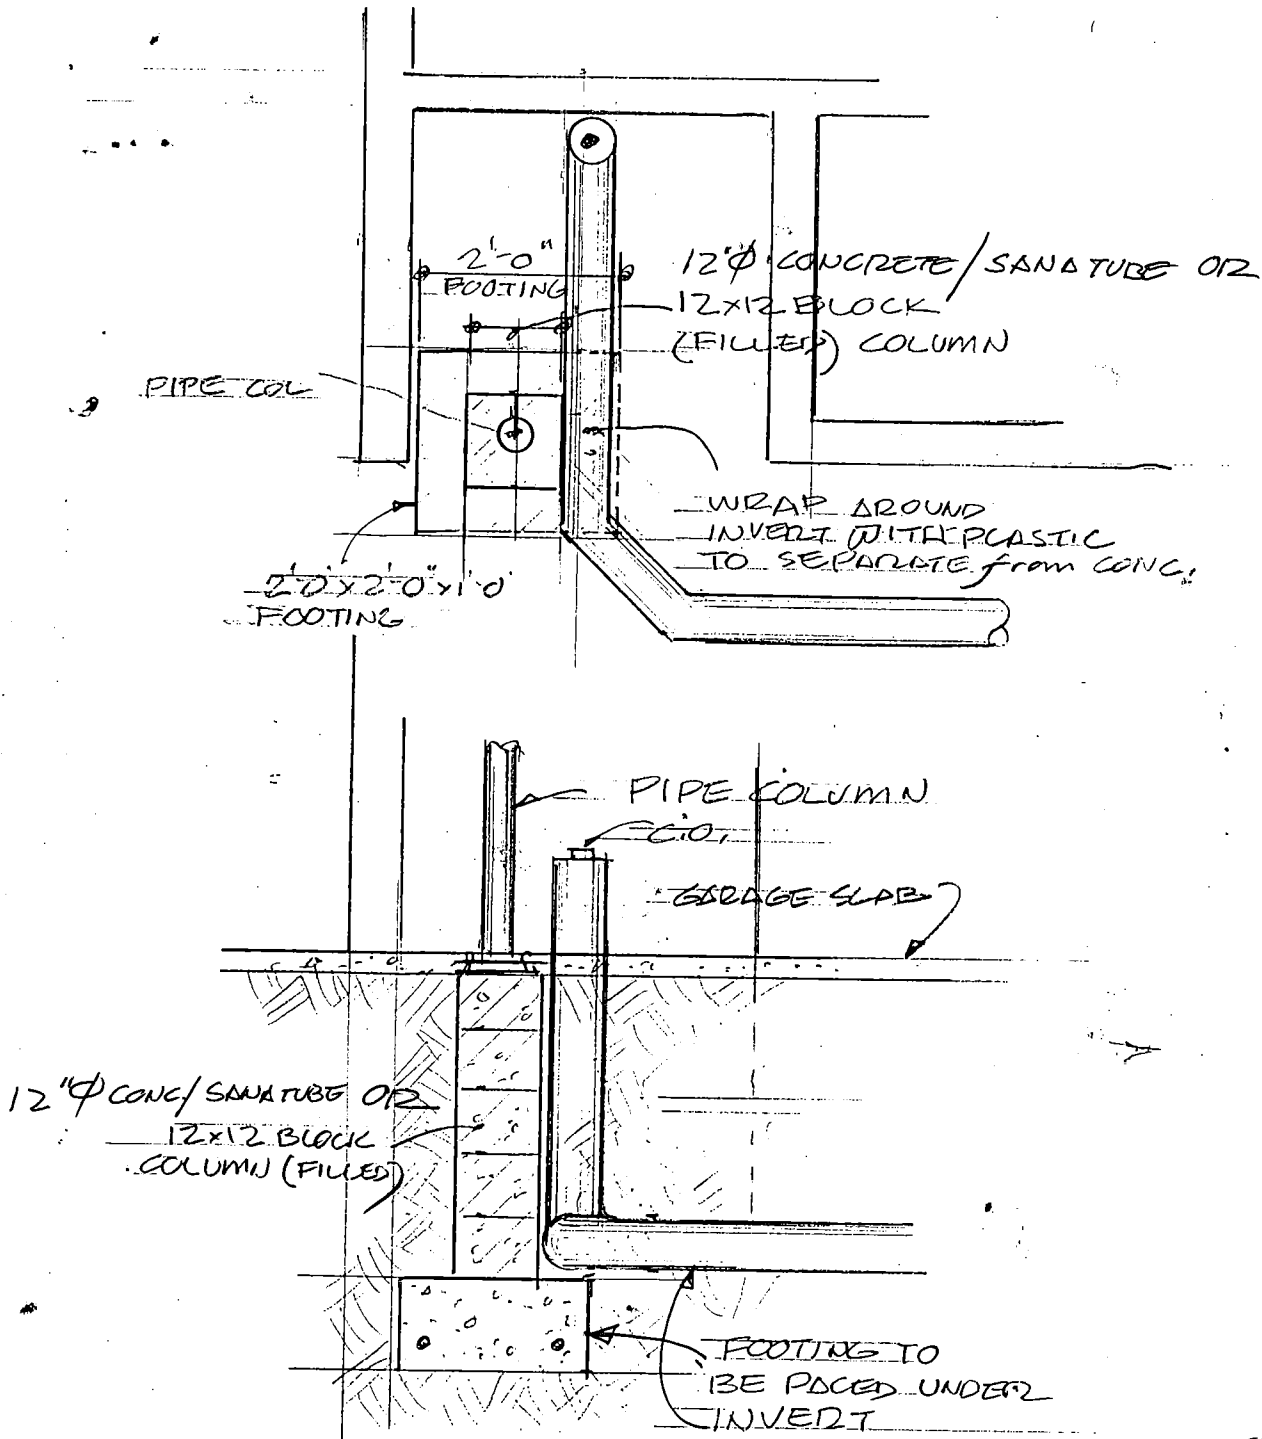 2'-0"
FOOTING
12"Ø CONCRETE/SANATUBE OR
12x12 BLOCK
(FILLED) COLUMN
PIPE COL
WRAP AROUND
INVERT WITH PLASTIC
TO SEPARATE from CONC.
2'0"x2'-0"x1'-0"
FOOTING
PIPE COLUMN
C.O.
GARAGE SLAB
12"Ø CONC/SANATUBE OR
12x12 BLOCK
COLUMN (FILLED)
FOOTING TO
BE PACED UNDER
INVERT